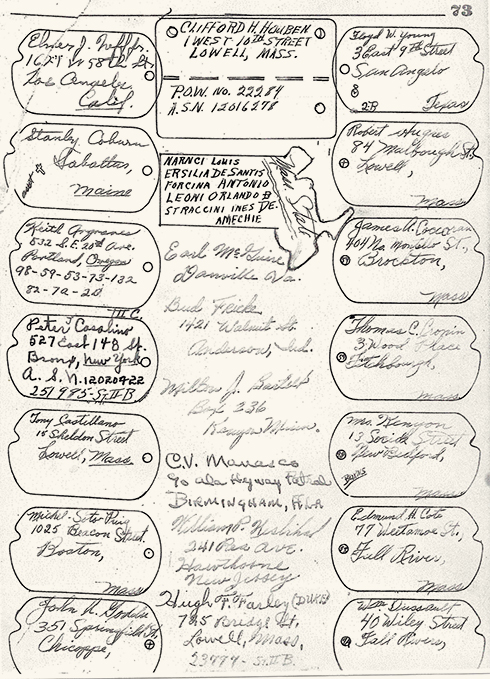 73
Elmer J. Neff Jr.
1627 W 58th St.
Los Angeles
Calif.
Stanley Coburn
Sabattus,
Maine
Keith
532 S.E. 20th Ave.
Portland, Oregon
98-59-53-73-132
82-7a-20
III C.
Peter Casalino
527 East 148 St.
Bronx, New York
A. S. N. 12020422
251985-St. II B
Tony Castellano
15 Sheldon Street
Lowell, Mass.
Michel Soto
1025 Beacon Street.
Boston,
Mass
John
351 Springfield St,
Chicopee,
CLIFFORD H. HOUBEN
1 WEST 10TH STREET
LOWELL, MASS.
P.O.W. No. 22284
A.S.N. 12016278
NARNCI LOUIS
ERSILIA DE SANTIS
FORCINA ANTONIO
LEONI ORLANDO
STRACCINI INES DE-
AMECHIE
Earl McGuire
Danville Va.
Bud Fricke
1421 Walnut St.
Anderson, Ind.
Milton J.
Box 336
Maine.
C.V. Manasco
% ala Hiyway Patrol
BIRMINGHAM, ALA
William P.
241 Ave.
Hawthorne
New Jersey
Hugh F. Farley (DUKE)
785 Bridge St,
Lowell, Mass,
23777 - St. II B.
Floyd W. Young
3 East 9th Street
San Angelo
8
2B Texas
Robert Hughes
84 Marlbough St.
Lowell,
James A. Corcoran
404 No. Montello St.,
Brockton,
Mass
Thomas C. Cronin
3 Wood Place
Fitchburgh,
mass
Mrs. Kenyon
13 Street
New Bedford,
Mass
Edmund H. Cote
77 Wetamoe St.,
Fall River,
Mass
Wm. Dussault
40 Wiley Street
Fall River,